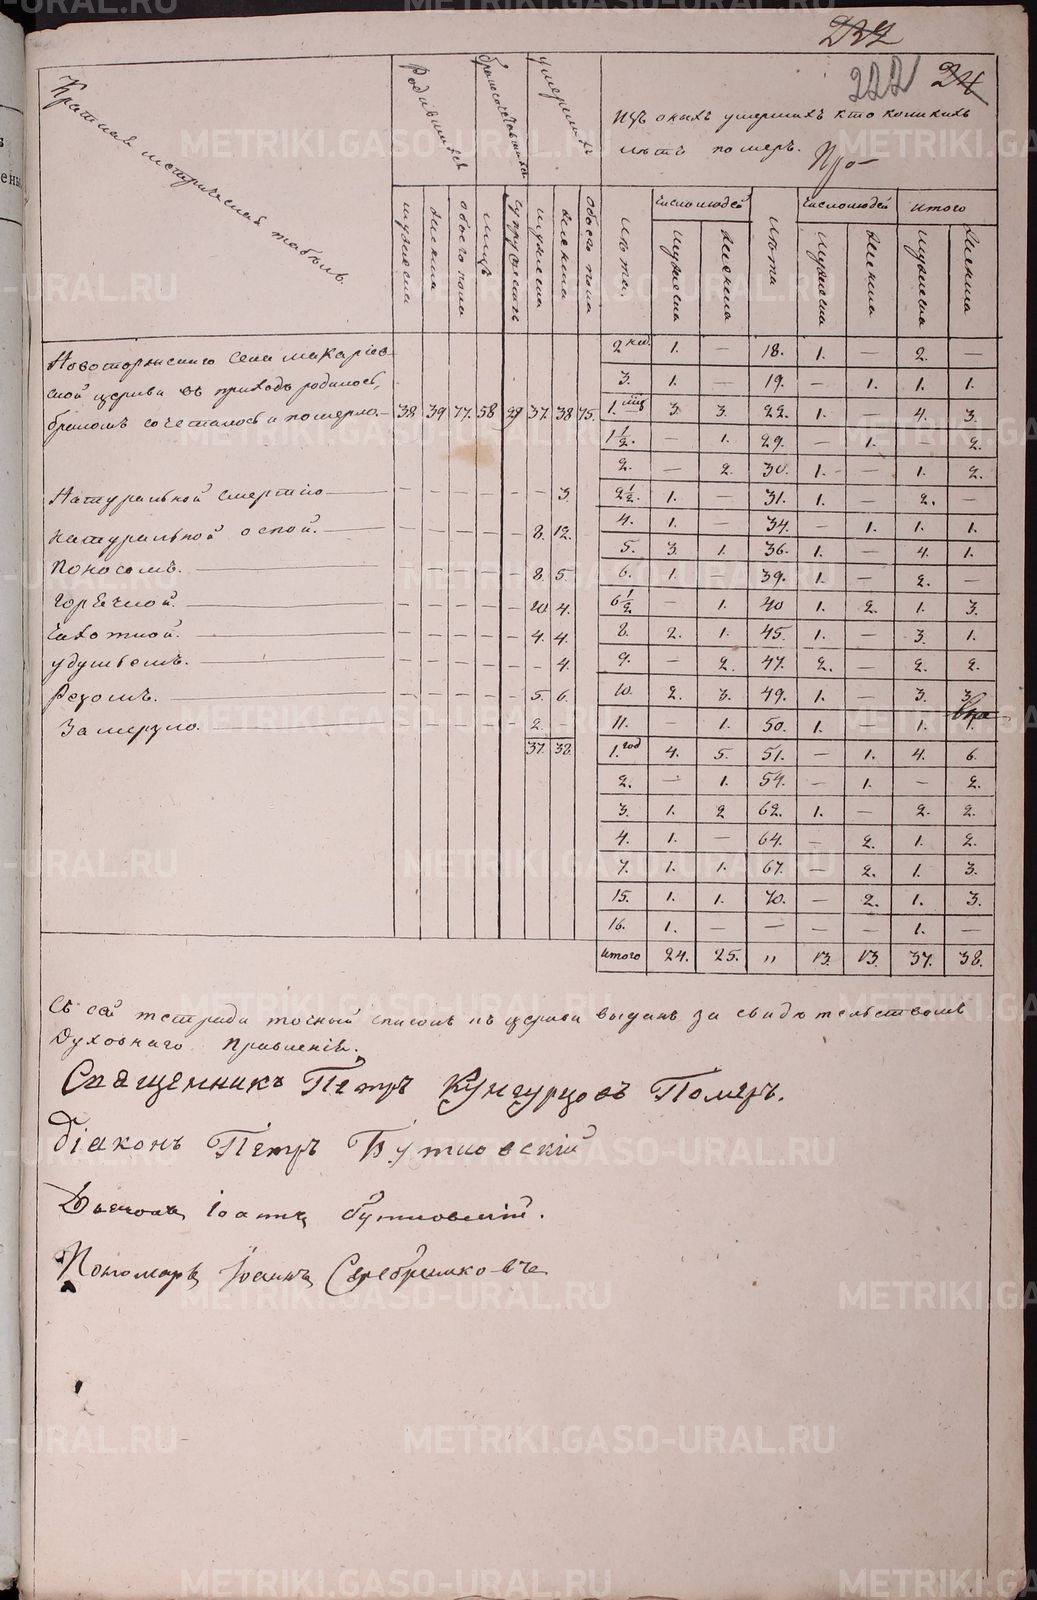 237
222 24
Изъ оныхъ умершихъ кто коликихъ
лѣтъ померъ. Про-
Краткая метрическая табель.
Родившихся
бракосочетавшихся
умершихъ
мужеска
женска
обоего пола
лицъ
супружествъ
мужеска
женска
обоего пола
лѣта.
число людей
мужеска
женска
лѣта
число людей
мужеска
женска
итого
мужеска
женска
Новоторжскаго села макаріев-
ской церкви въ приходѣ родилось,
бракомъ сочеталось и померло— 38 39 77. 58 29 37. 38 75.
Натуральной смертію — — — — — — — 3.
натуральной оспой. — — — — — — 8. 12.
Поносомъ. — — — — — — 8. 5.
Горячкой. — — — — — — 10 4.
Чахоткой. — — — — — — 4. 4.
удушьемъ. — — — — — — — 4.
Резомъ. — — — — — — 5. 6.
Замерзло. — — — — — — 2.
37. 38.
2 нед. 1. — 18. 1. — 2. —
3. 1. — 19. — 1. 1. 1.
1. мѣс 3. 3. 22. 1. — 4. 3.
1 1/2. — 1. 29. — 1. 2.
2. — 2. 30. 1. — 1. 2.
2 1/2. 1. — 31. 1. — 2. —
4. 1. 34. — 1. 1. 1.
5. 3. 1. 36. 1. — 4. 1.
6. 1. — 39. 1. — 2. —
6 1/2 — 1. 40 1. 2. 1. 3.
8. 2. 1. 45. 1. — 3. 1.
9. — 2. 47. 2. — 2. 2.
10. 2. 3. 49. 1. — 3. 3.
11. — 1. 50. 1. — 1. 1.
1. год 4. 5. 51. — 1. 4. 6.
2. — 1. 54. — 1. — 2.
3. 1. 2 62. 1. — 2. 2.
4. 1. — 64. — 2. 1. 2.
7. 1. 1. 67. — 2. 1. 3.
15. 1. 1. 70. — 2. 1. 3.
16. 1. — — — — 1. —
итого 24. 25. „ 13. 13. 37. 38.
Съ сей тетради точный списокъ къ церкви выданъ за свидѣтельствомъ
Духовнаго Правленія.
Священникъ Петръ Кунгурцовъ Померъ.
Діаконъ Петръ Бутковскій
Дьячокъ Іоаннъ бутковскій.
Пономарь Іоаннъ Серебрянковъ
METRIKI.GASO-URAL.RU